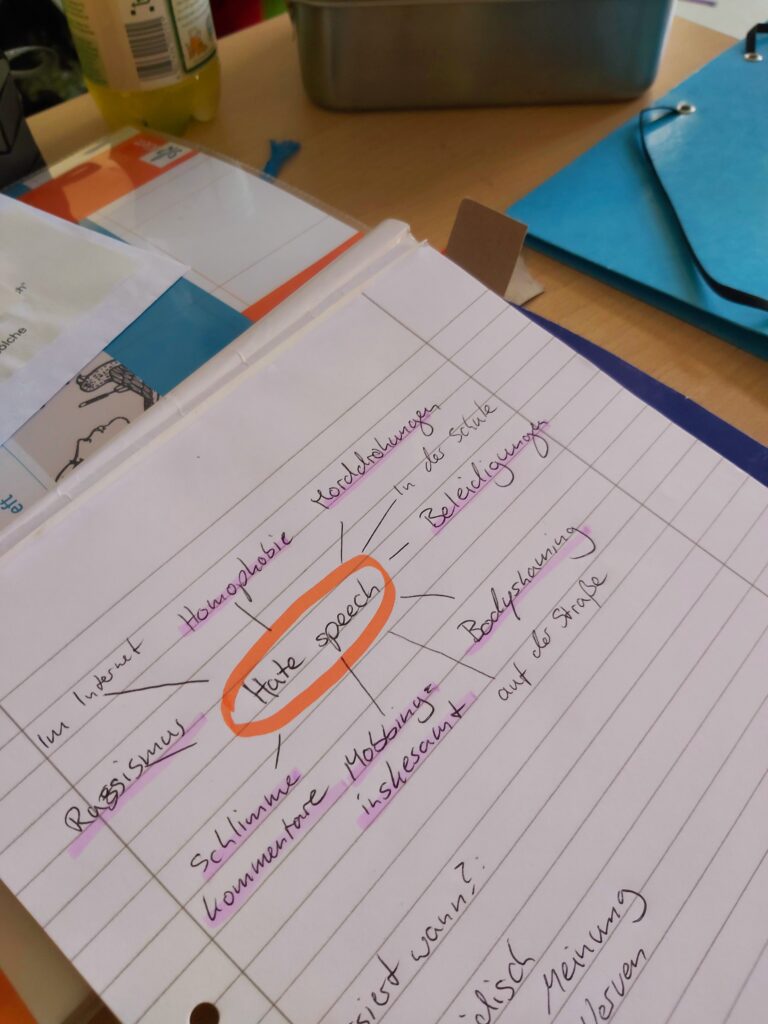 Morddrohungen
In der Schule
Beleidigungen
Homophobie
Hate speech
Bodyshaming
auf der Straße
Im Internet
Rassismus
Mobbing=
insbesamt
Schlimme
kommentare
siert wann?:
disch
Meinung
Nerven